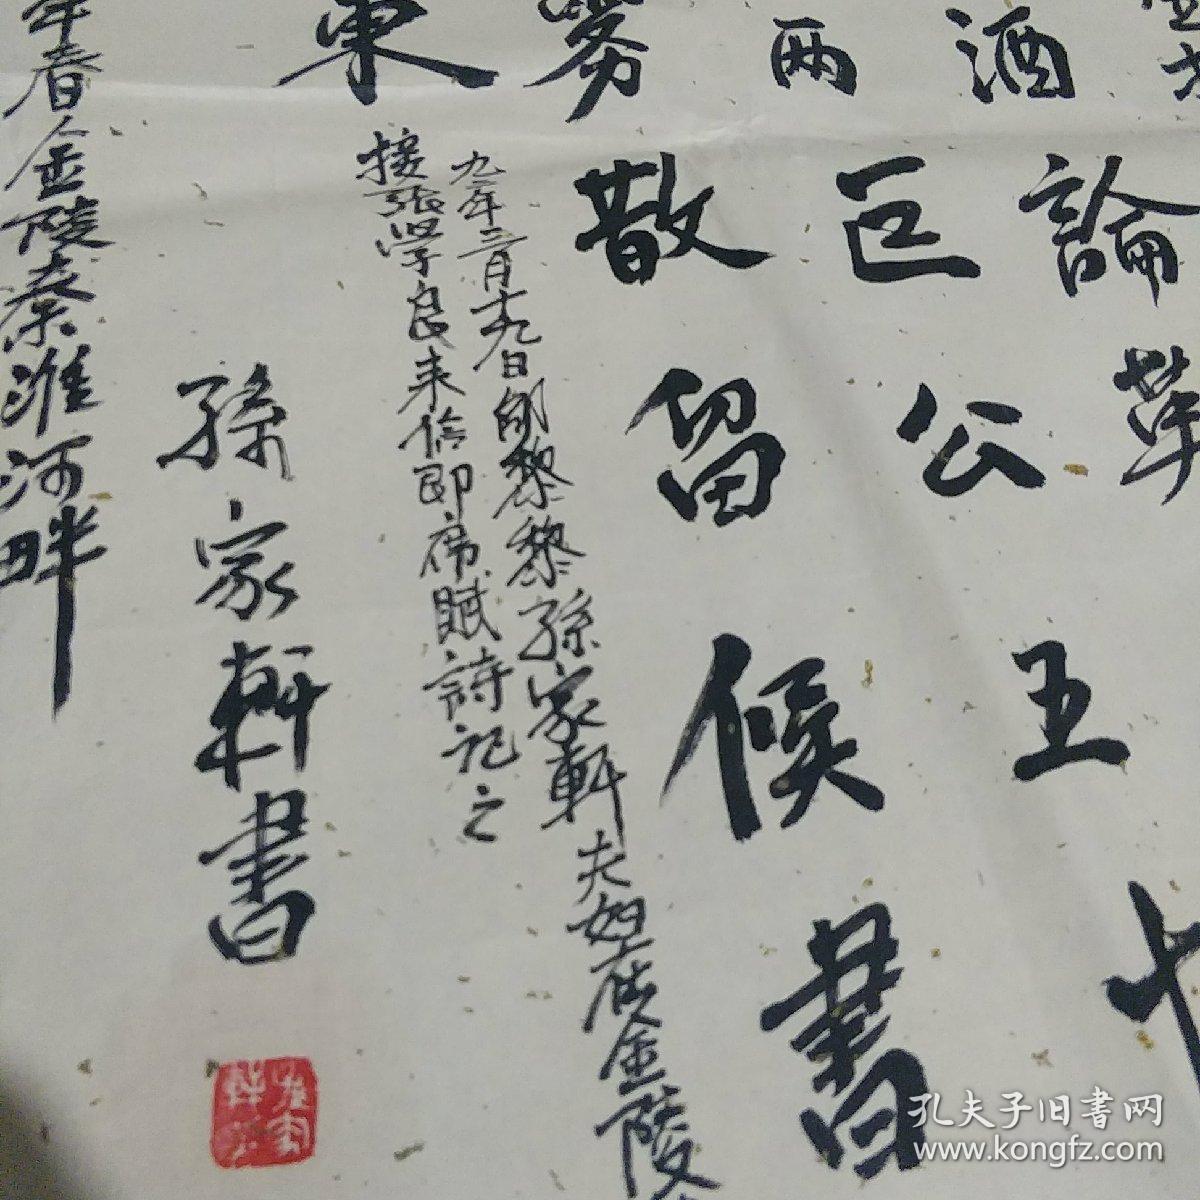 論草
酒巨公王
兩
霧散留候書
東
九一年三月十九日黎黎孫家軒夫婦在金陵
接張学良来信即席賦詩記之
孫家軒書
年春金陵秦淮河畔
孔夫子旧書网
www.kongfz.com